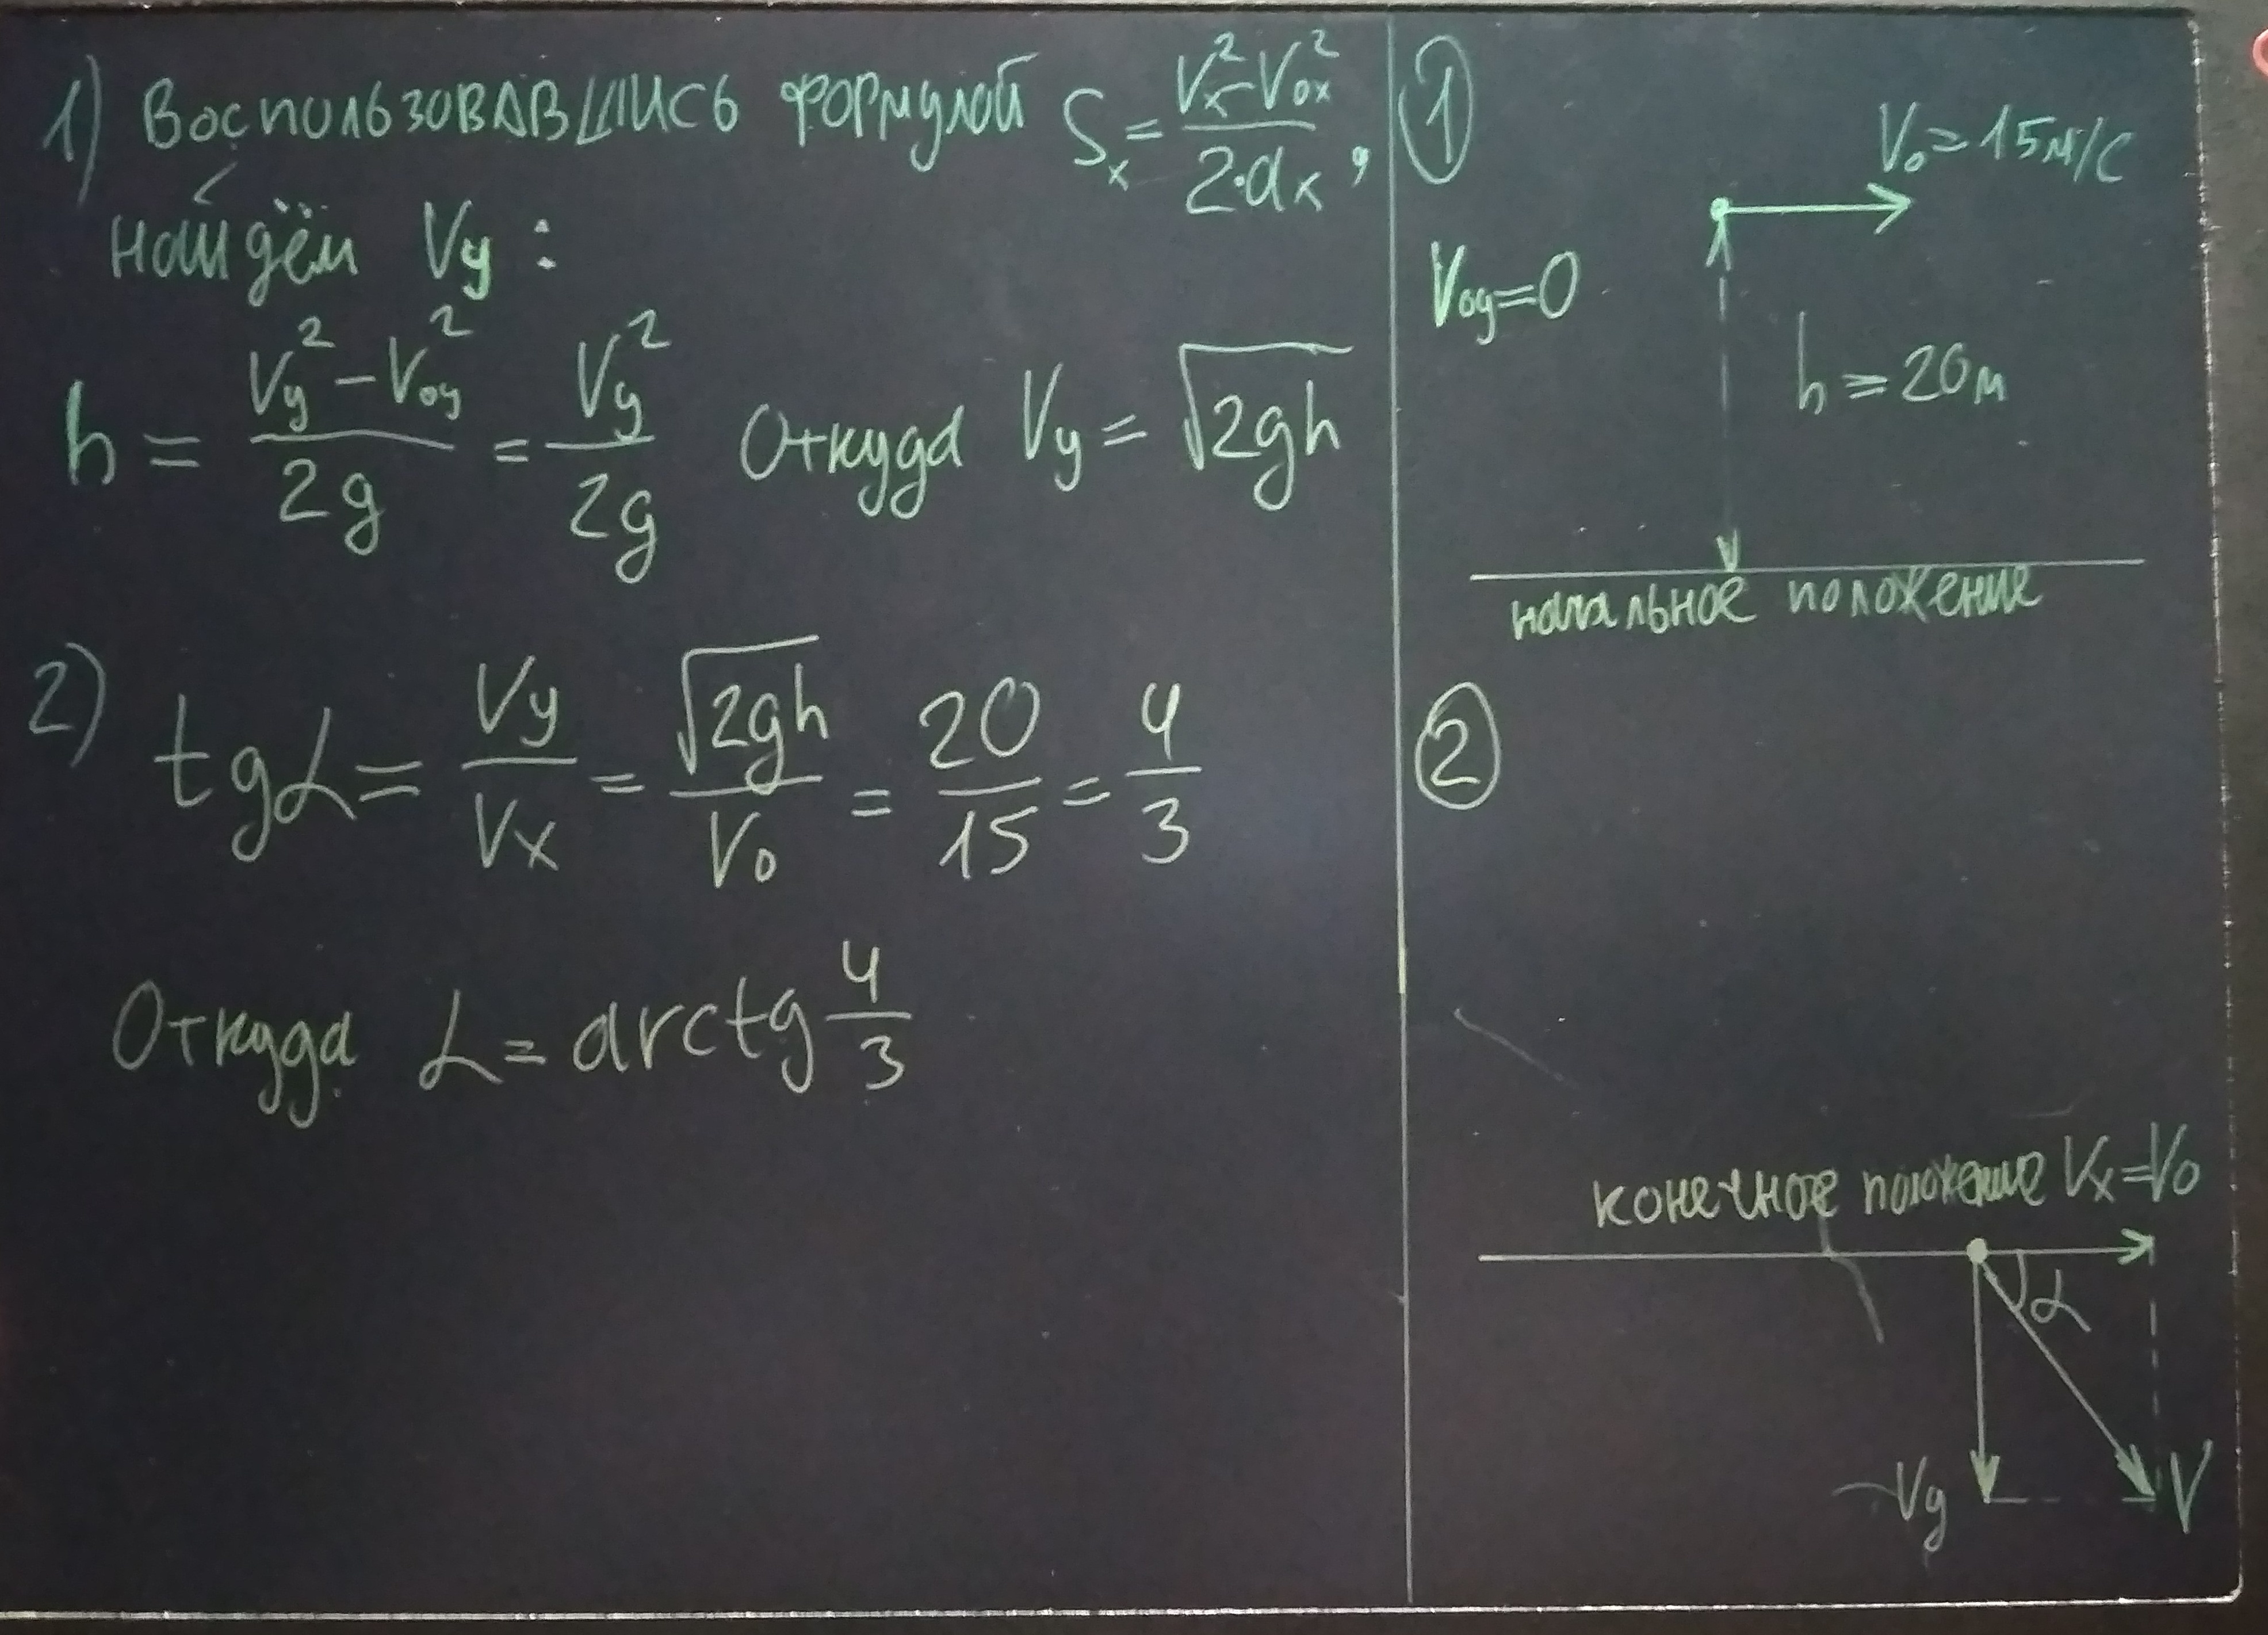 1) Воспользовавшись формулой Sₓ = (Vₓ² - V₀ₓ²) / (2·aₓ),
найдём Vy :
h = (Vy² - V₀y²) / (2g) = Vy² / (2g) Откуда Vy = √(2gh)
2) tgα = Vy / Vx = √(2gh) / V₀ = 20 / 15 = 4 / 3
Откуда α = arctg 4/3
①
V₀ = 15м/с
V₀y = 0
h = 20м
начальное положение
②
конечное положение Vx = V₀
α
Vy
V